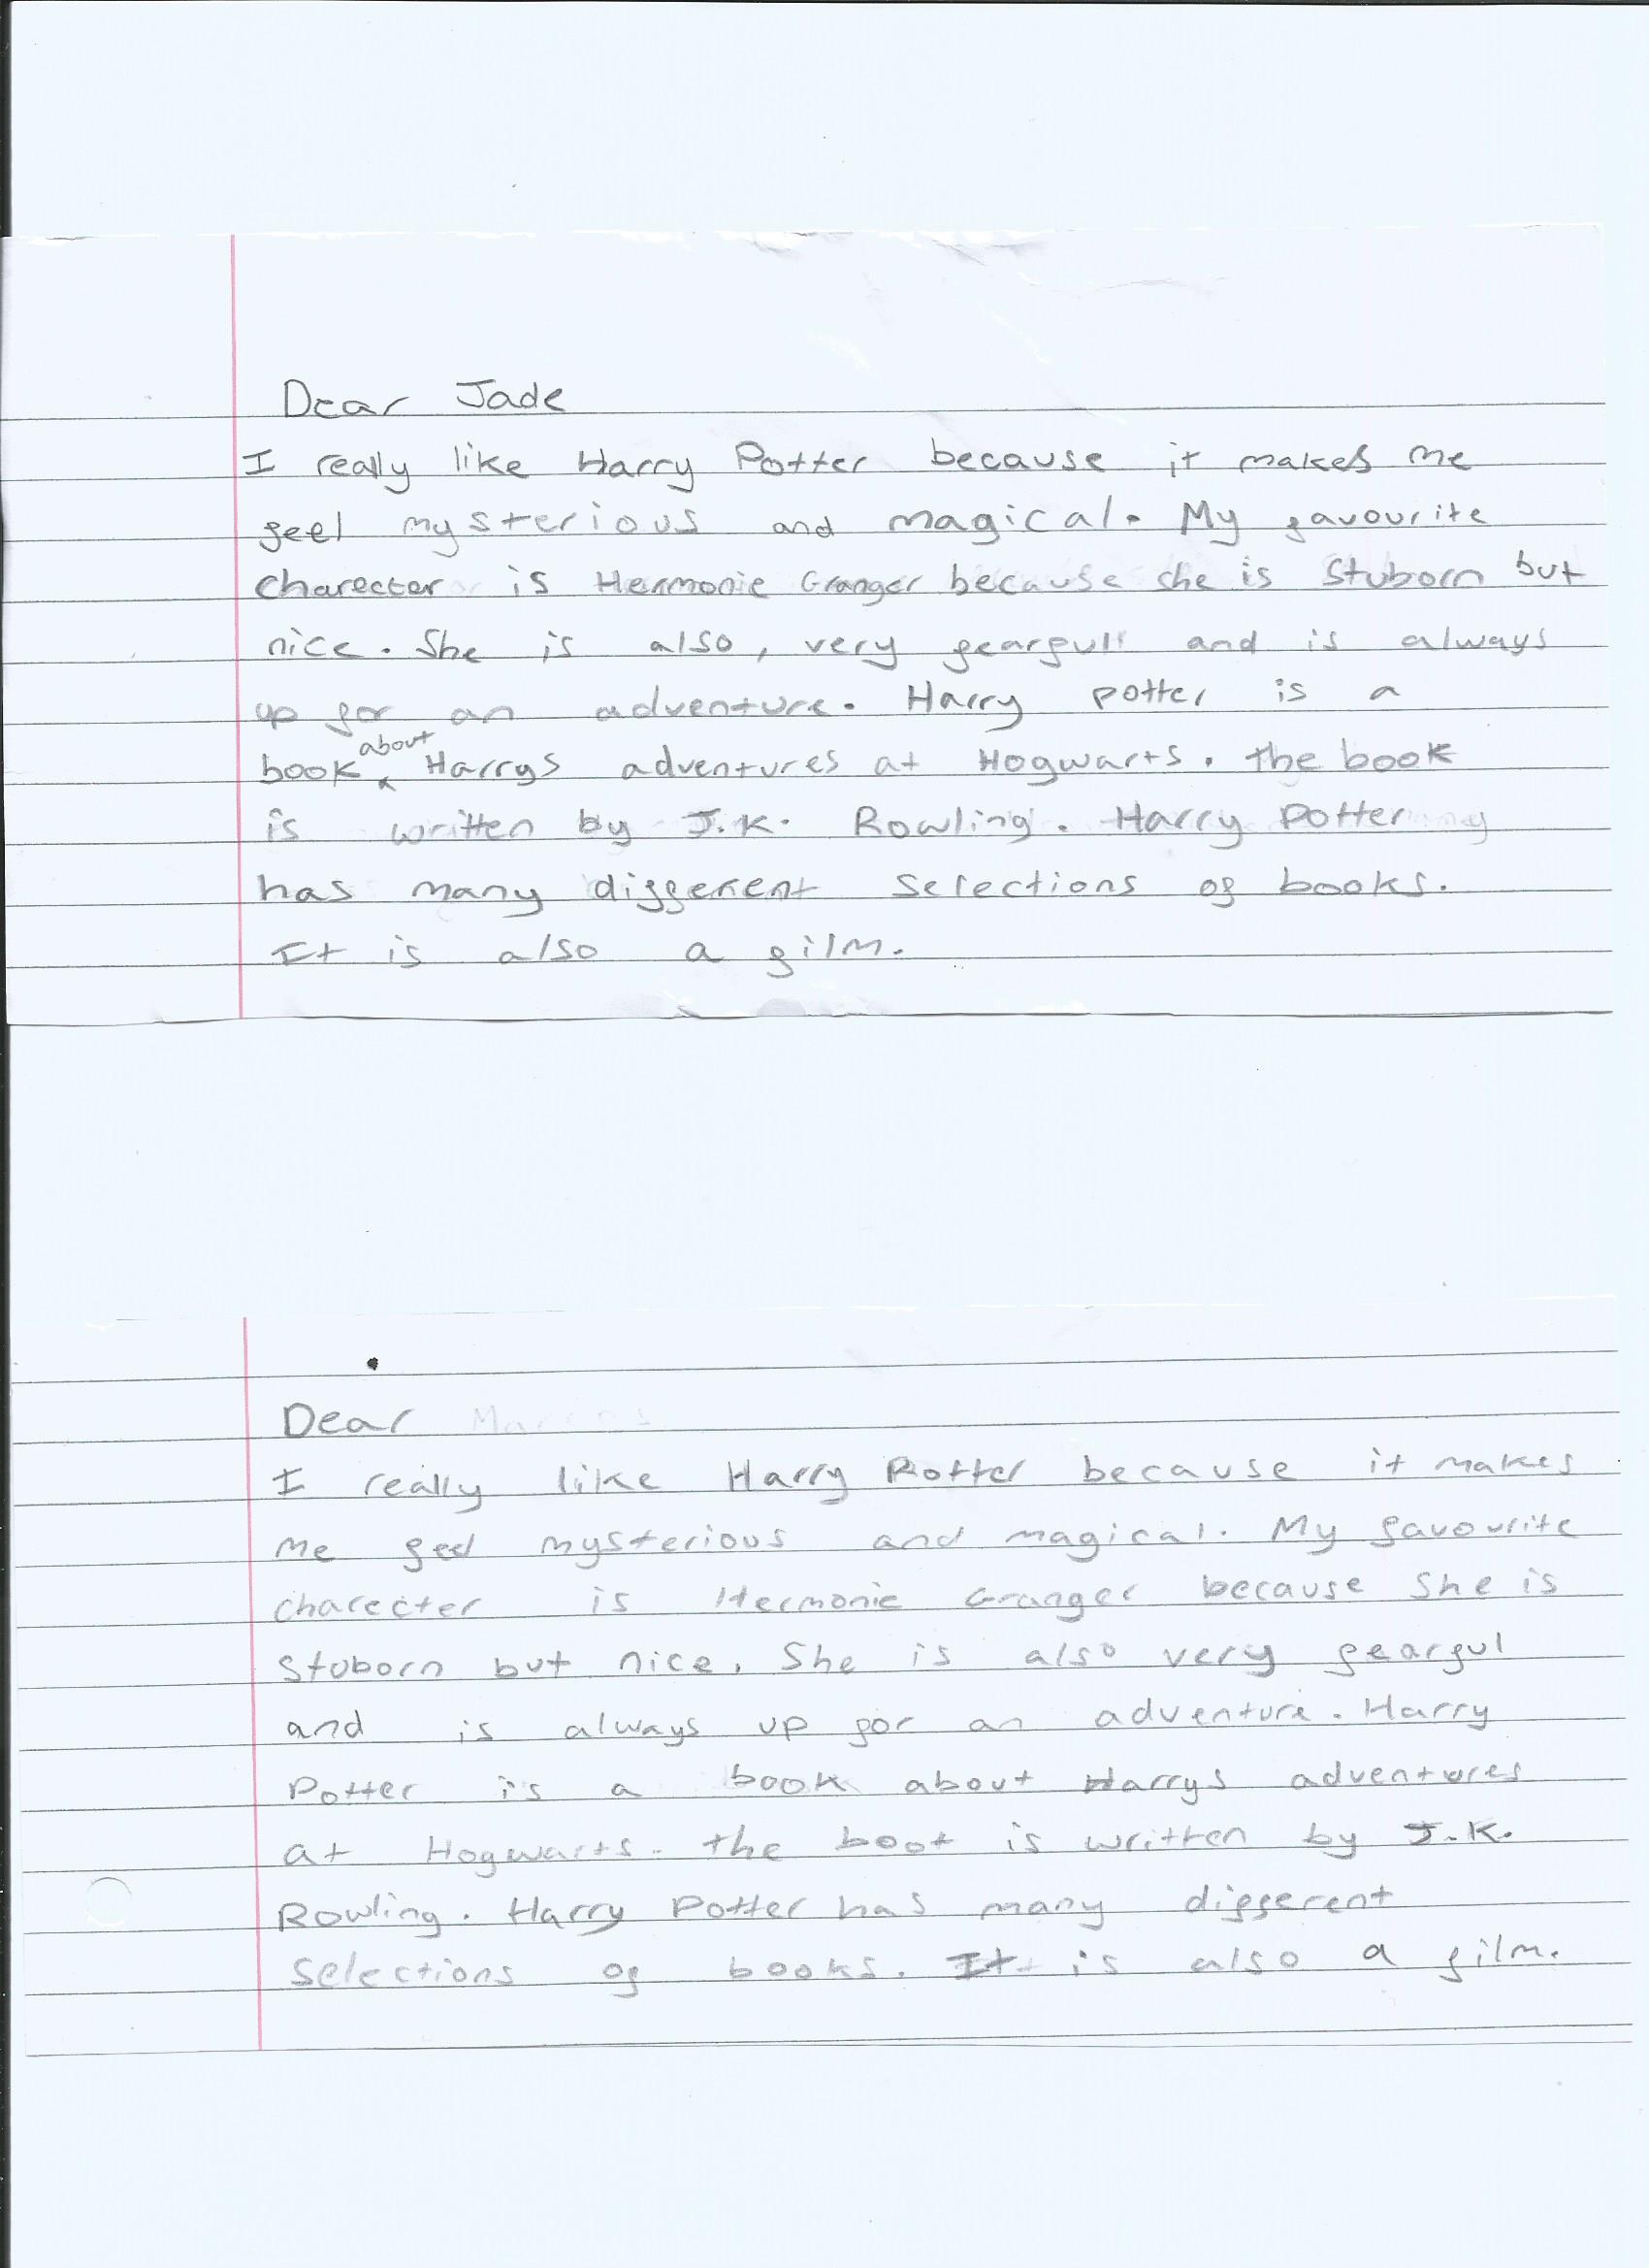 Dear Jade
I really like Harry Potter because it makes me
feel mysterious and magical. My favourite
charecter is Hermonie Granger because she is Stuborn but
nice. She is also, very fearfull and is always
up for an adventure. Harry potter is a
book about Harrys adventures at Hogwarts. the book
is written by J.K. Rowling. Harry Potter
has many different selections of books.
It is also a film.
Dear
I really like Harry Potter because it makes
me feel mysterious and magical. My favourite
charecter is Hermonie Granger because She is
Stuborn but nice. She is also very fearful
and is always up for an adventure. Harry
Potter is a book about Harrys adventures
at Hogwarts. the book is written by J.K.
Rowling. Harry Potter has many different
selections of books. It is also a film.